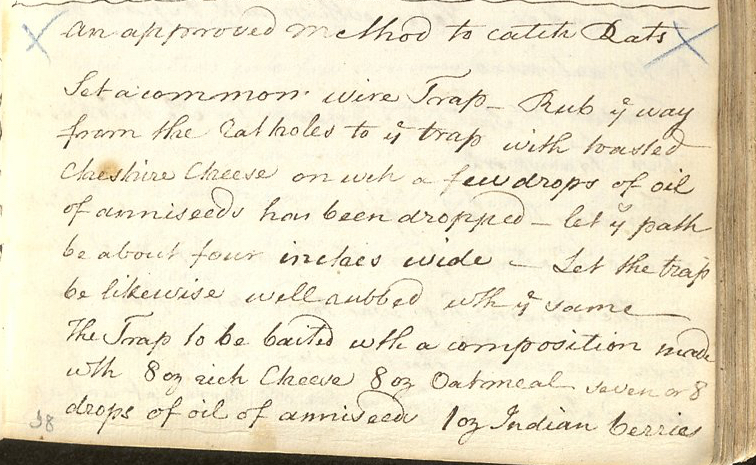 An approved Method to catch Rats
Set a common wire Trap - Rub yͤ way
from the Ratholes to yͤ trap with toasted
Cheshire Cheese on wch a few drops of oil
of anniseeds has been dropped - let yͤ path
be about four inches wide - Let the trap
be likewise well rubbed wth yͤ same
The Trap to be baited wth a composition made
wth 8 oz rich Cheese 8 oz Oatmeal seven or 8
drops of oil of anniseeds 1 oz Indian berries
38